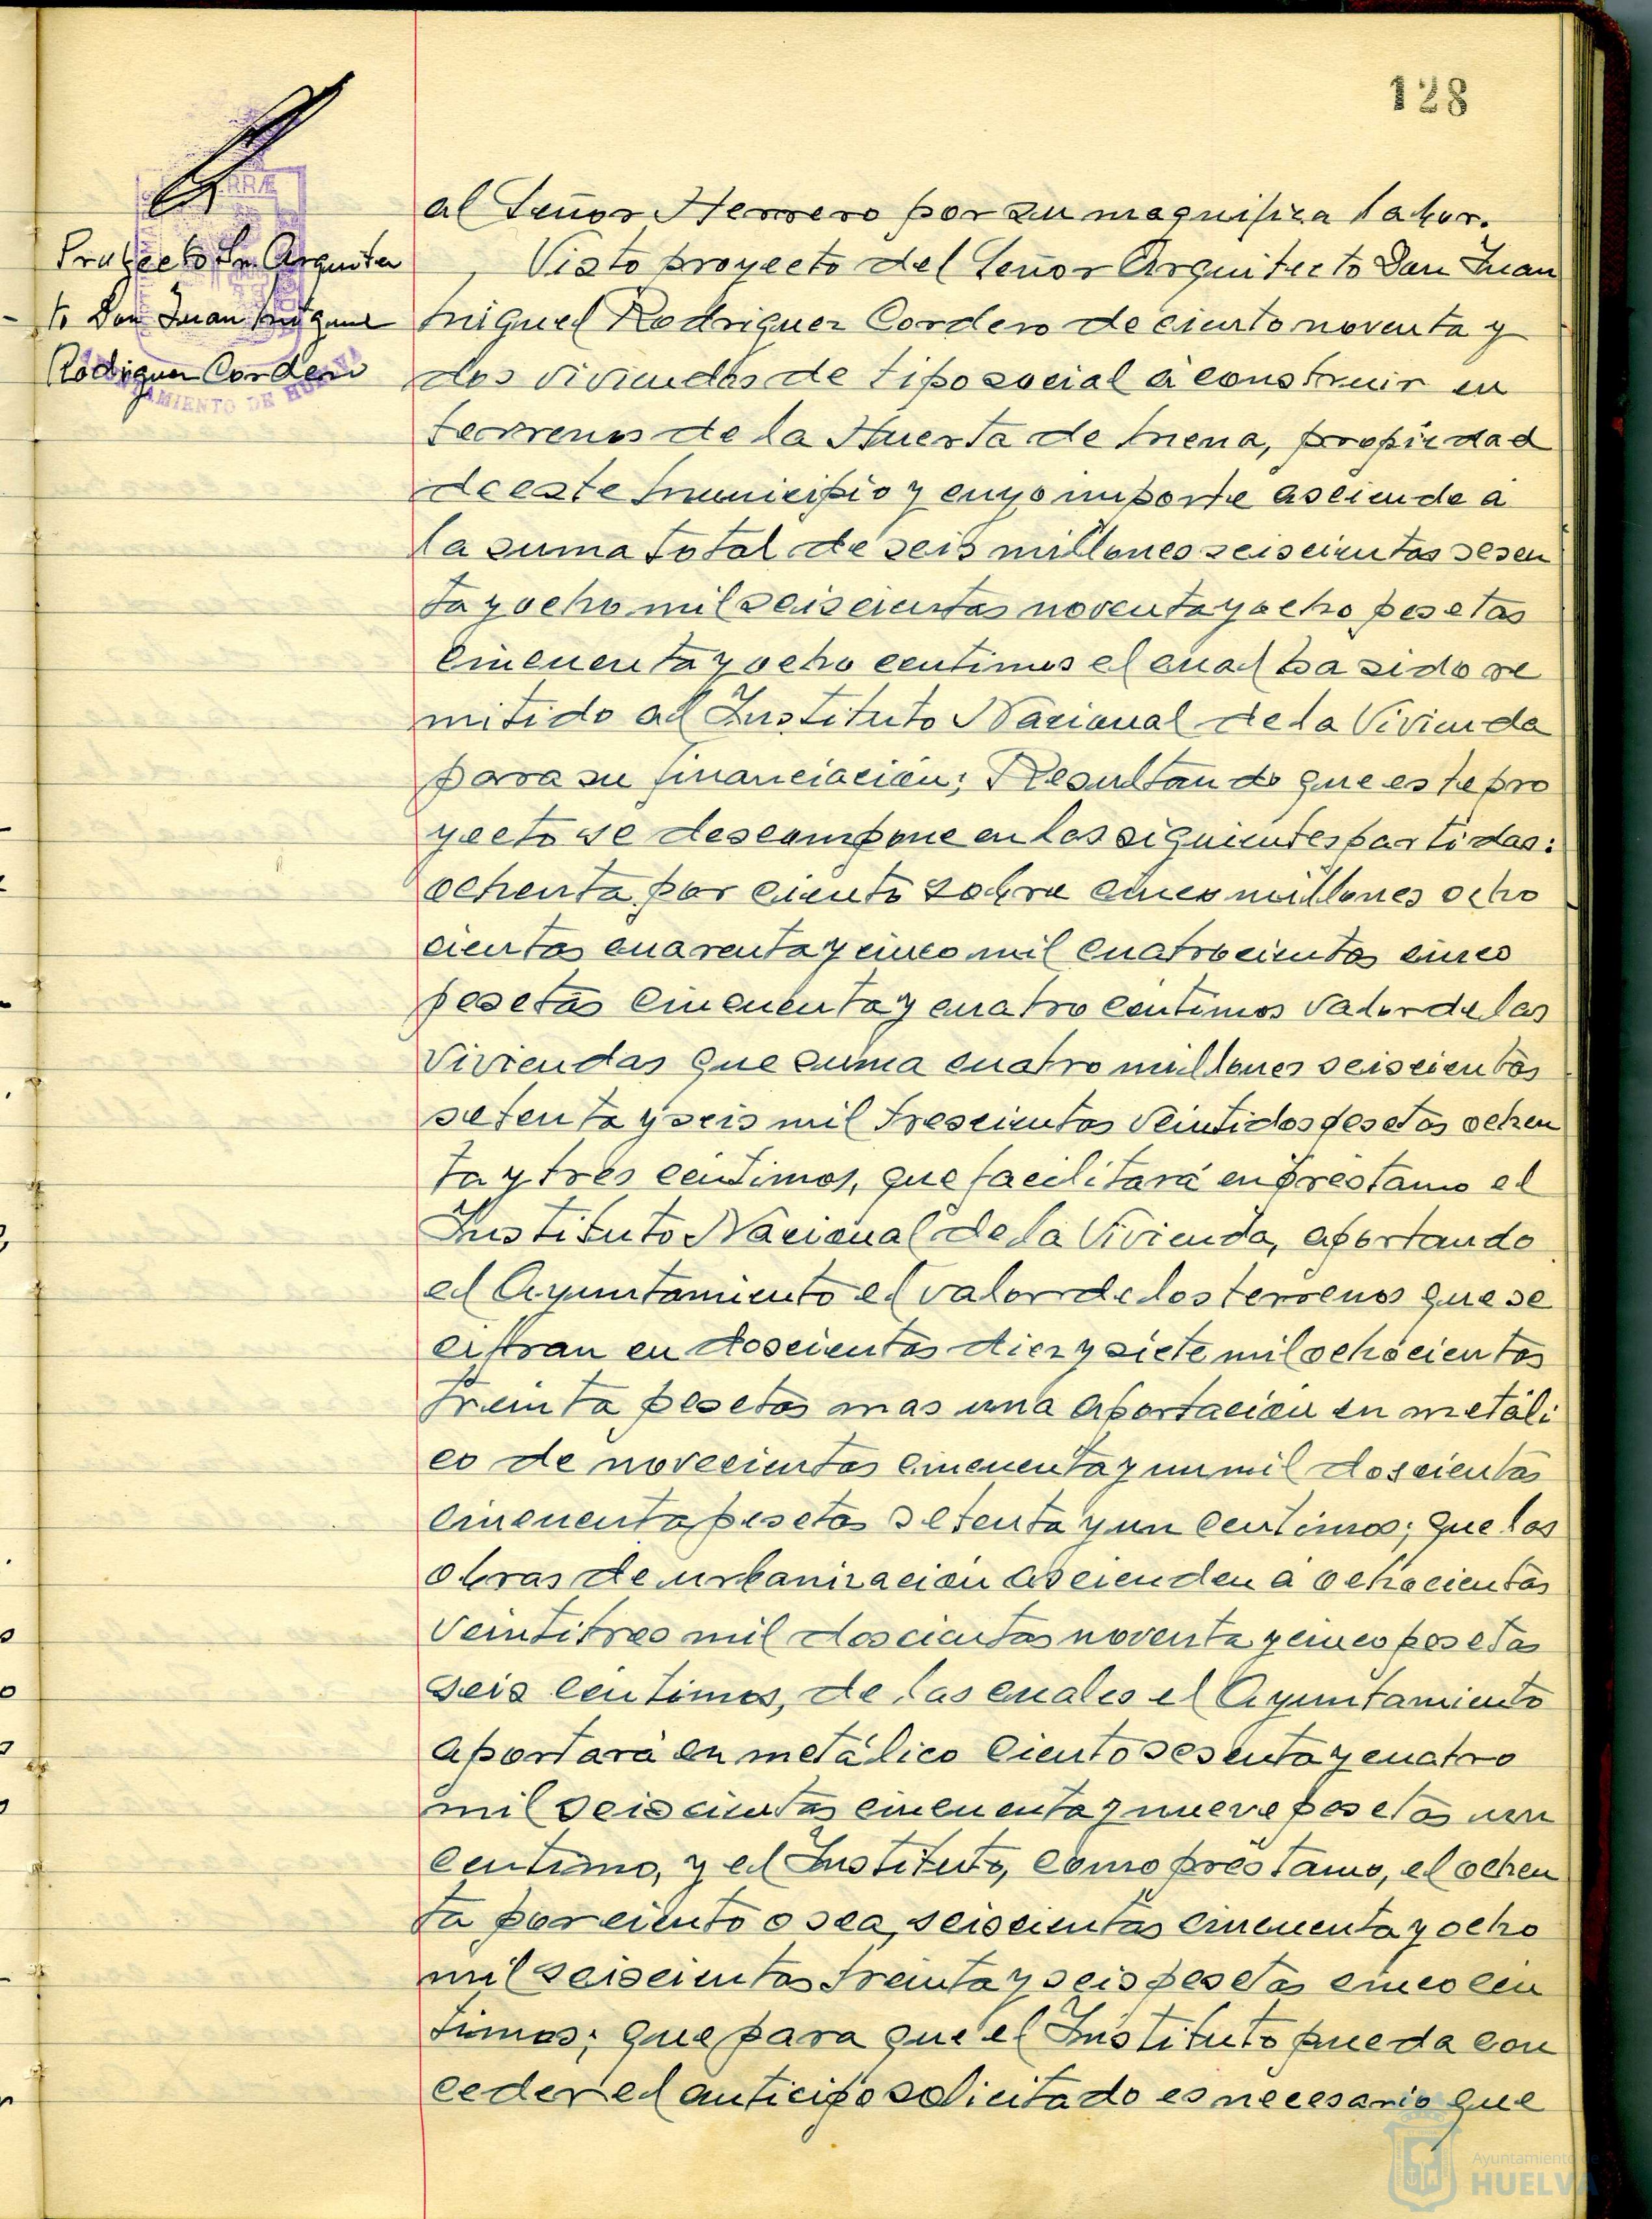 128
al Señor Herrero por su magnifica labor.
Proyecto Sr. Arquitec
to Don Juan Miguel
Rodriguez Cordero
Visto proyecto del Señor Arquitecto Don Juan
Miguel Rodriguez Cordero de ciento noventa y
dos viviendas de tipo social á construir en
terrenos de la Huerta de Mena, propiedad
de este Municipio y cuyo importe asciende á
la suma total de seis millones seiscientas sesen
ta y ocho mil seiscientas noventa y ocho pesetas
cincuenta y ocho centimos el cual ha sido re
mitido al Instituto Nacional de la Vivienda
para su financiación; Resultando que este pro
yecto se descompone en las siguientes partidas:
ochenta por ciento sobre cinco millones ocho
cientas cuarenta y cinco mil cuatrocientas cinco
pesetas cincuenta y cuatro centimos valor de las
viviendas que suma cuatro millones seiscientas
setenta y seis mil trescientas veintidos pesetas ochen
ta y tres centimos, que facilitará en prestamo el
Instituto Nacional de la Vivienda, aportando
el Ayuntamiento el valor de los terrenos que se
cifran en doscientas diez y siete mil ochocientas
treinta pesetas mas una aportación en metáli
co de novecientas cincuenta y un mil doscientas
cincuenta pesetas setenta y un centimos; que las
obras de urbanización ascienden á ochocientas
veintitres mil doscientas noventa y cinco pesetas
seis centimos, de las cuales el Ayuntamiento
aportará en metálico ciento sesenta y cuatro
mil seiscientas cincuenta y nueve pesetas un
centimo, y el Instituto, como prestamo, el ochen
ta por ciento o sea, seiscientas cincuenta y ocho
mil seiscientas treinta y seis pesetas cinco cen
timos; que para que el Instituto pueda con
ceder el anticipo solicitado es necesario que
AYUNTAMIENTO DE HUELVA
Ayuntamiento de
HUELVA